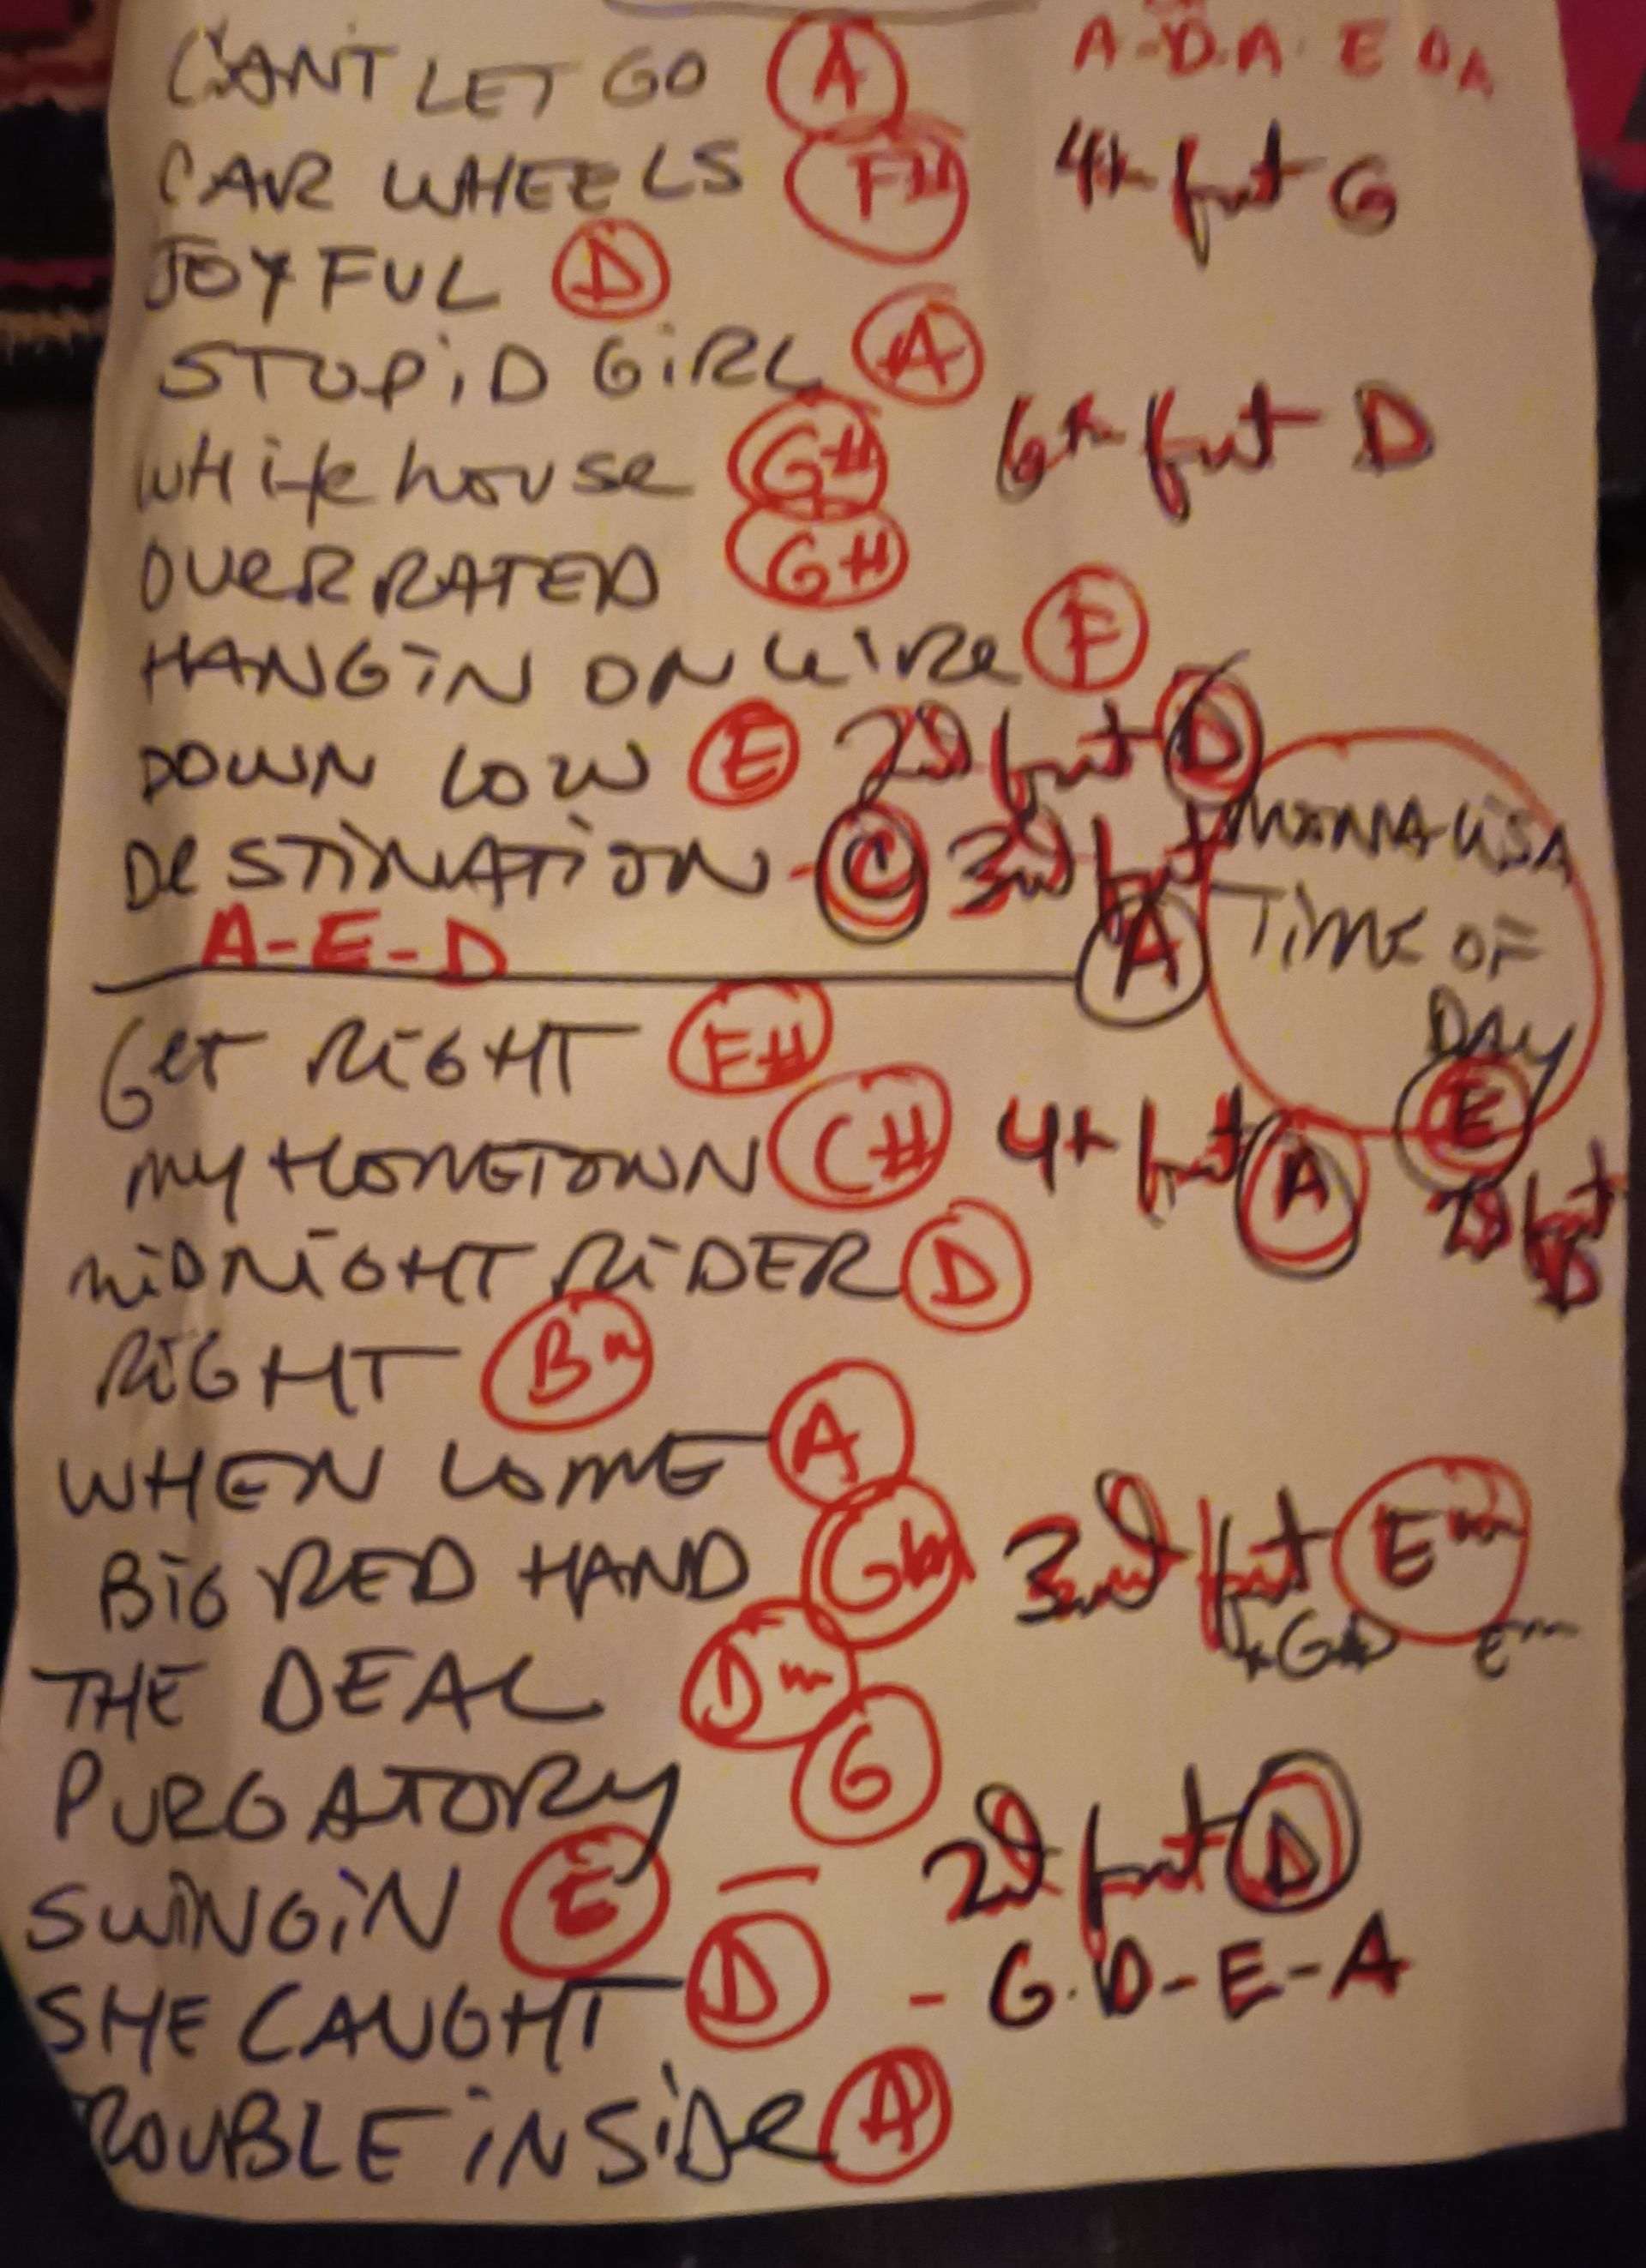 CAN'T LET GO A A-D-A-E DA
CAR WHEELS F# 4th fret G
JOYFUL D
STUPID GIRL A
White house G# 6th fret D
OVERRATED G#
HANGIN ON WIRE F
DOWN LOW E 2nd fret D
DESTINATION - C 3rd fret A
A-E-D
MONNA LISA
TIME OF
DAY
E
2nd fret
D
Get RIGHT F#
MY HOMETOWN C# 4th fret A
MIDNIGHT RIDER D
RIGHT Bm
WHEN COME A
BIG RED HAND Gbm 3rd fret Em
Em
THE DEAL Dm
PURGATORY G
SWINGIN E - 2nd fret D
SHE CAUGHT D - G.D-E-A
ROUBLE INSIDE A